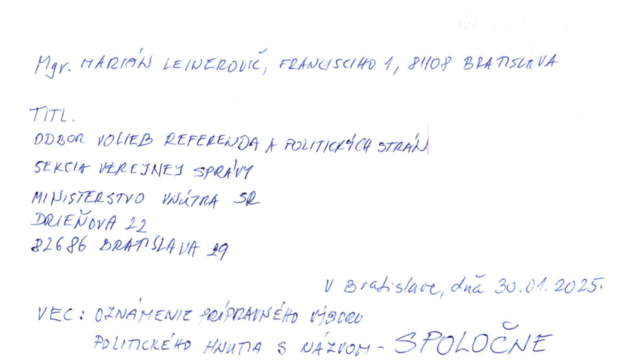 Mgr. MARIÁN LEINEROVIČ, FRANCISCIHO 1, 81108 BRATISLAVA
TITL.
ODBOR VOLIEB REFERENDA A POLITICKÝCH STRÁN
SEKCIA VEREJNEJ SPRÁVY
MINISTERSTVO VNÚTRA SR
DRIEŇOVA 22
82686 BRATISLAVA 29
V Bratislave, dňa 30.01.2025.
VEC: OZNÁMENIE PRÍPRAVNÉHO VÝBORU
POLITICKÉHO HNUTIA S NÁZVOM - SPOLOČNE